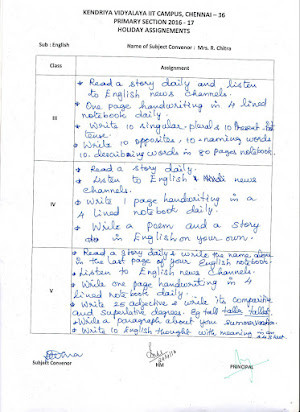 KENDRIYA VIDYALAYA IIT CAMPUS, CHENNAI – 36
PRIMARY SECTION 2016 - 17
HOLIDAY ASSIGNEMENTS
Sub : English Name of Subject Convenor : Mrs. R. Chitra
Class Assignment
III
* Read a story daily and listen
to English news channels.
* One page handwriting in 4 lined
notebook daily.
* Write 10 singular - plural & 10 Present - Past
tense.
* Write 10 opposites, 10 naming words
10 describing words in 80 pages notebook.
IV
* Read a story daily.
* Listen to English & Hindi news
channels.
* Write 1 page handwriting in a
4 lined notebook daily.
* Write a poem and a story
in English on your own.
V
* Read a story daily & write the name alone
in the last page of your English notebook.
* Listen to English news channels.
* Write one page handwriting in 4
lined note book daily.
* Write 25 adjective & write its comparitive
and superlative degrees. Eg tall taller tallest
* Write a paragraph about your summer
* Write 10 English thought with meaning in an
Subject Convenor HM PRINCIPAL